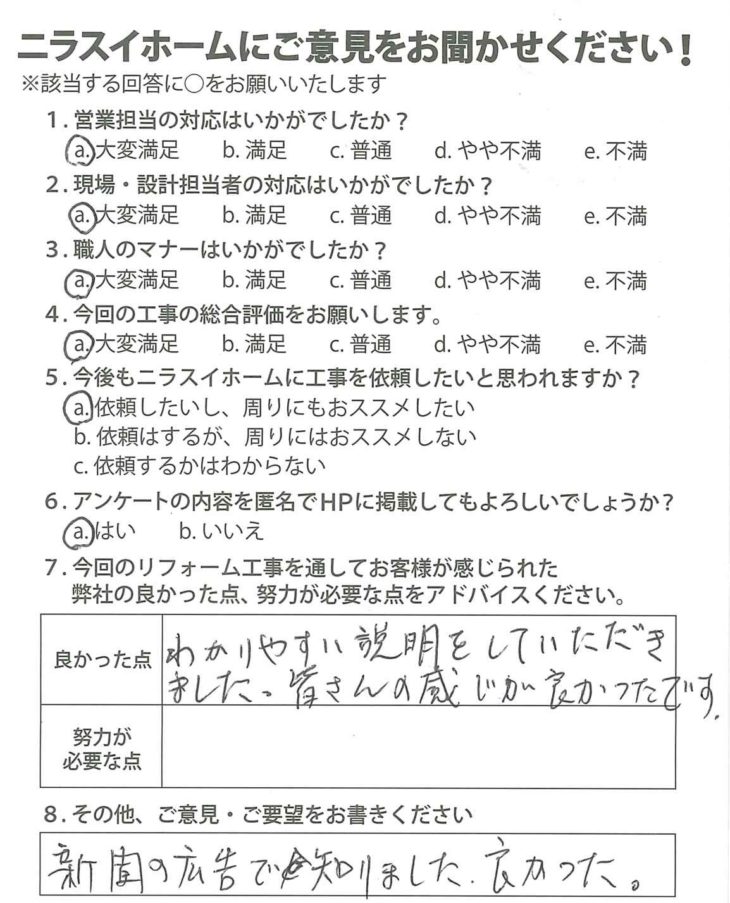 ニラスイホームにご意見をお聞かせください！
※該当する回答に○をお願いいたします
1．営業担当の対応はいかがでしたか？
a. 大変満足 b. 満足 c. 普通 d. やや不満 e. 不満
2．現場・設計担当者の対応はいかがでしたか？
a. 大変満足 b. 満足 c. 普通 d. やや不満 e. 不満
3．職人のマナーはいかがでしたか？
a. 大変満足 b. 満足 c. 普通 d. やや不満 e. 不満
4．今回の工事の総合評価をお願いします。
a. 大変満足 b. 満足 c. 普通 d. やや不満 e. 不満
5．今後もニラスイホームに工事を依頼したいと思われますか？
a. 依頼したいし、周りにもおススメしたい
b. 依頼はするが、周りにはおススメしない
c. 依頼するかはわからない
6．アンケートの内容を匿名でHPに掲載してもよろしいでしょうか？
a. はい b. いいえ
7．今回のリフォーム工事を通してお客様が感じられた
弊社の良かった点、努力が必要な点をアドバイスください。
良かった点
わかりやすい説明をしていただき
ました。皆さんの感じが良かったです。
努力が
必要な点
8．その他、ご意見・ご要望をお書きください
新聞の広告で知りました、良かった。